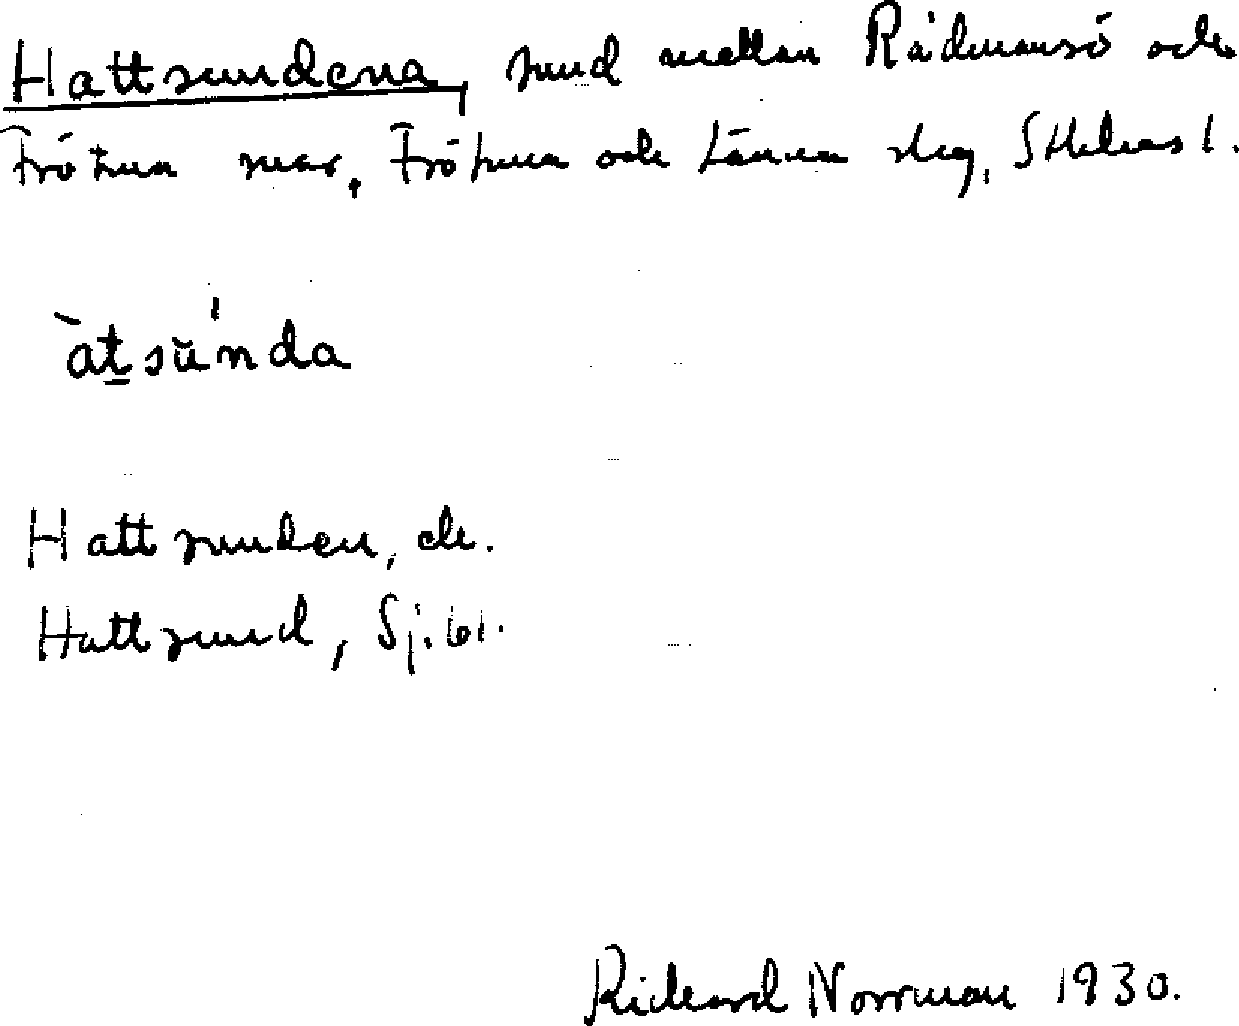 Hattsundena, sund mellan Rådmansö och
Frötuna snar, Frötuna och Länna skg, Sthlms l.
àt̲sŭ'nda
Hattsunden, ek.
Hattsund, Sj. 61.
Rickard Norrman 1930.